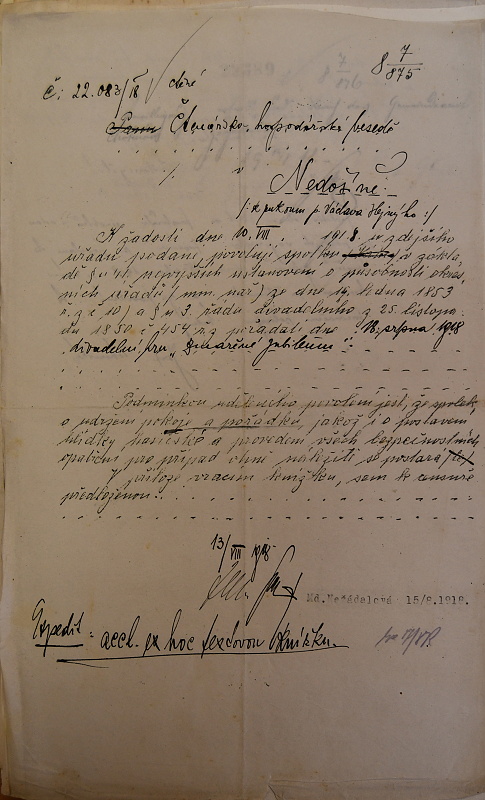 8 7/875
Č: 22.083/18
Pann Čtenářsko-hospodářské besedě
v
Nedošíně.
/: k rukoum p. Václava Hejného :/
K žádosti dne 10. VIII. 1918 u zdejšího
úřadu podané povoluji spolku v zákla
dě § u 41. nejvyšších ustanovení o působnosti okres
ních úřadů / min. nař / ze dne 19. ledna 1853
ř. z. č 10 / a § u 3. řádu divadelního z 25. listopa-
du 1850 č 454 ř. z pořádati dne 18. srpna 1918
divadelní hru „Zmařené jubileum".
Podmínkou uděleného povolení jest, že spolek
o udržení pokoje a pořádku, jakož i o postavení
hlídky hasičské a provedení všech bezpečnostních
opatření pro případ ohně náležitě se postará
V příloze vracím knížku, sem k censuře
předloženou.
13/VIII 1918
Nd. Nečádalová 15/8.1918.
Expedit: accl. ex hoc textovou knížku.